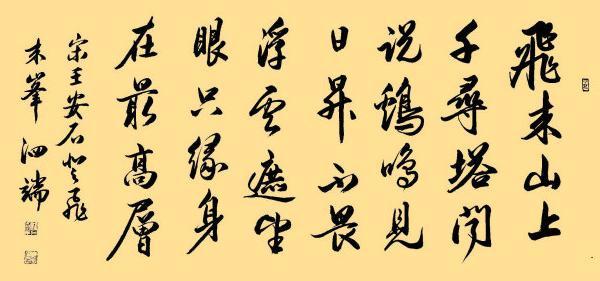 飛来山上
千尋塔聞
説鷄鳴見
日昇不畏
浮雲遮望
眼只緣身
在最高層
宋王安石登飛
来峯 泗端